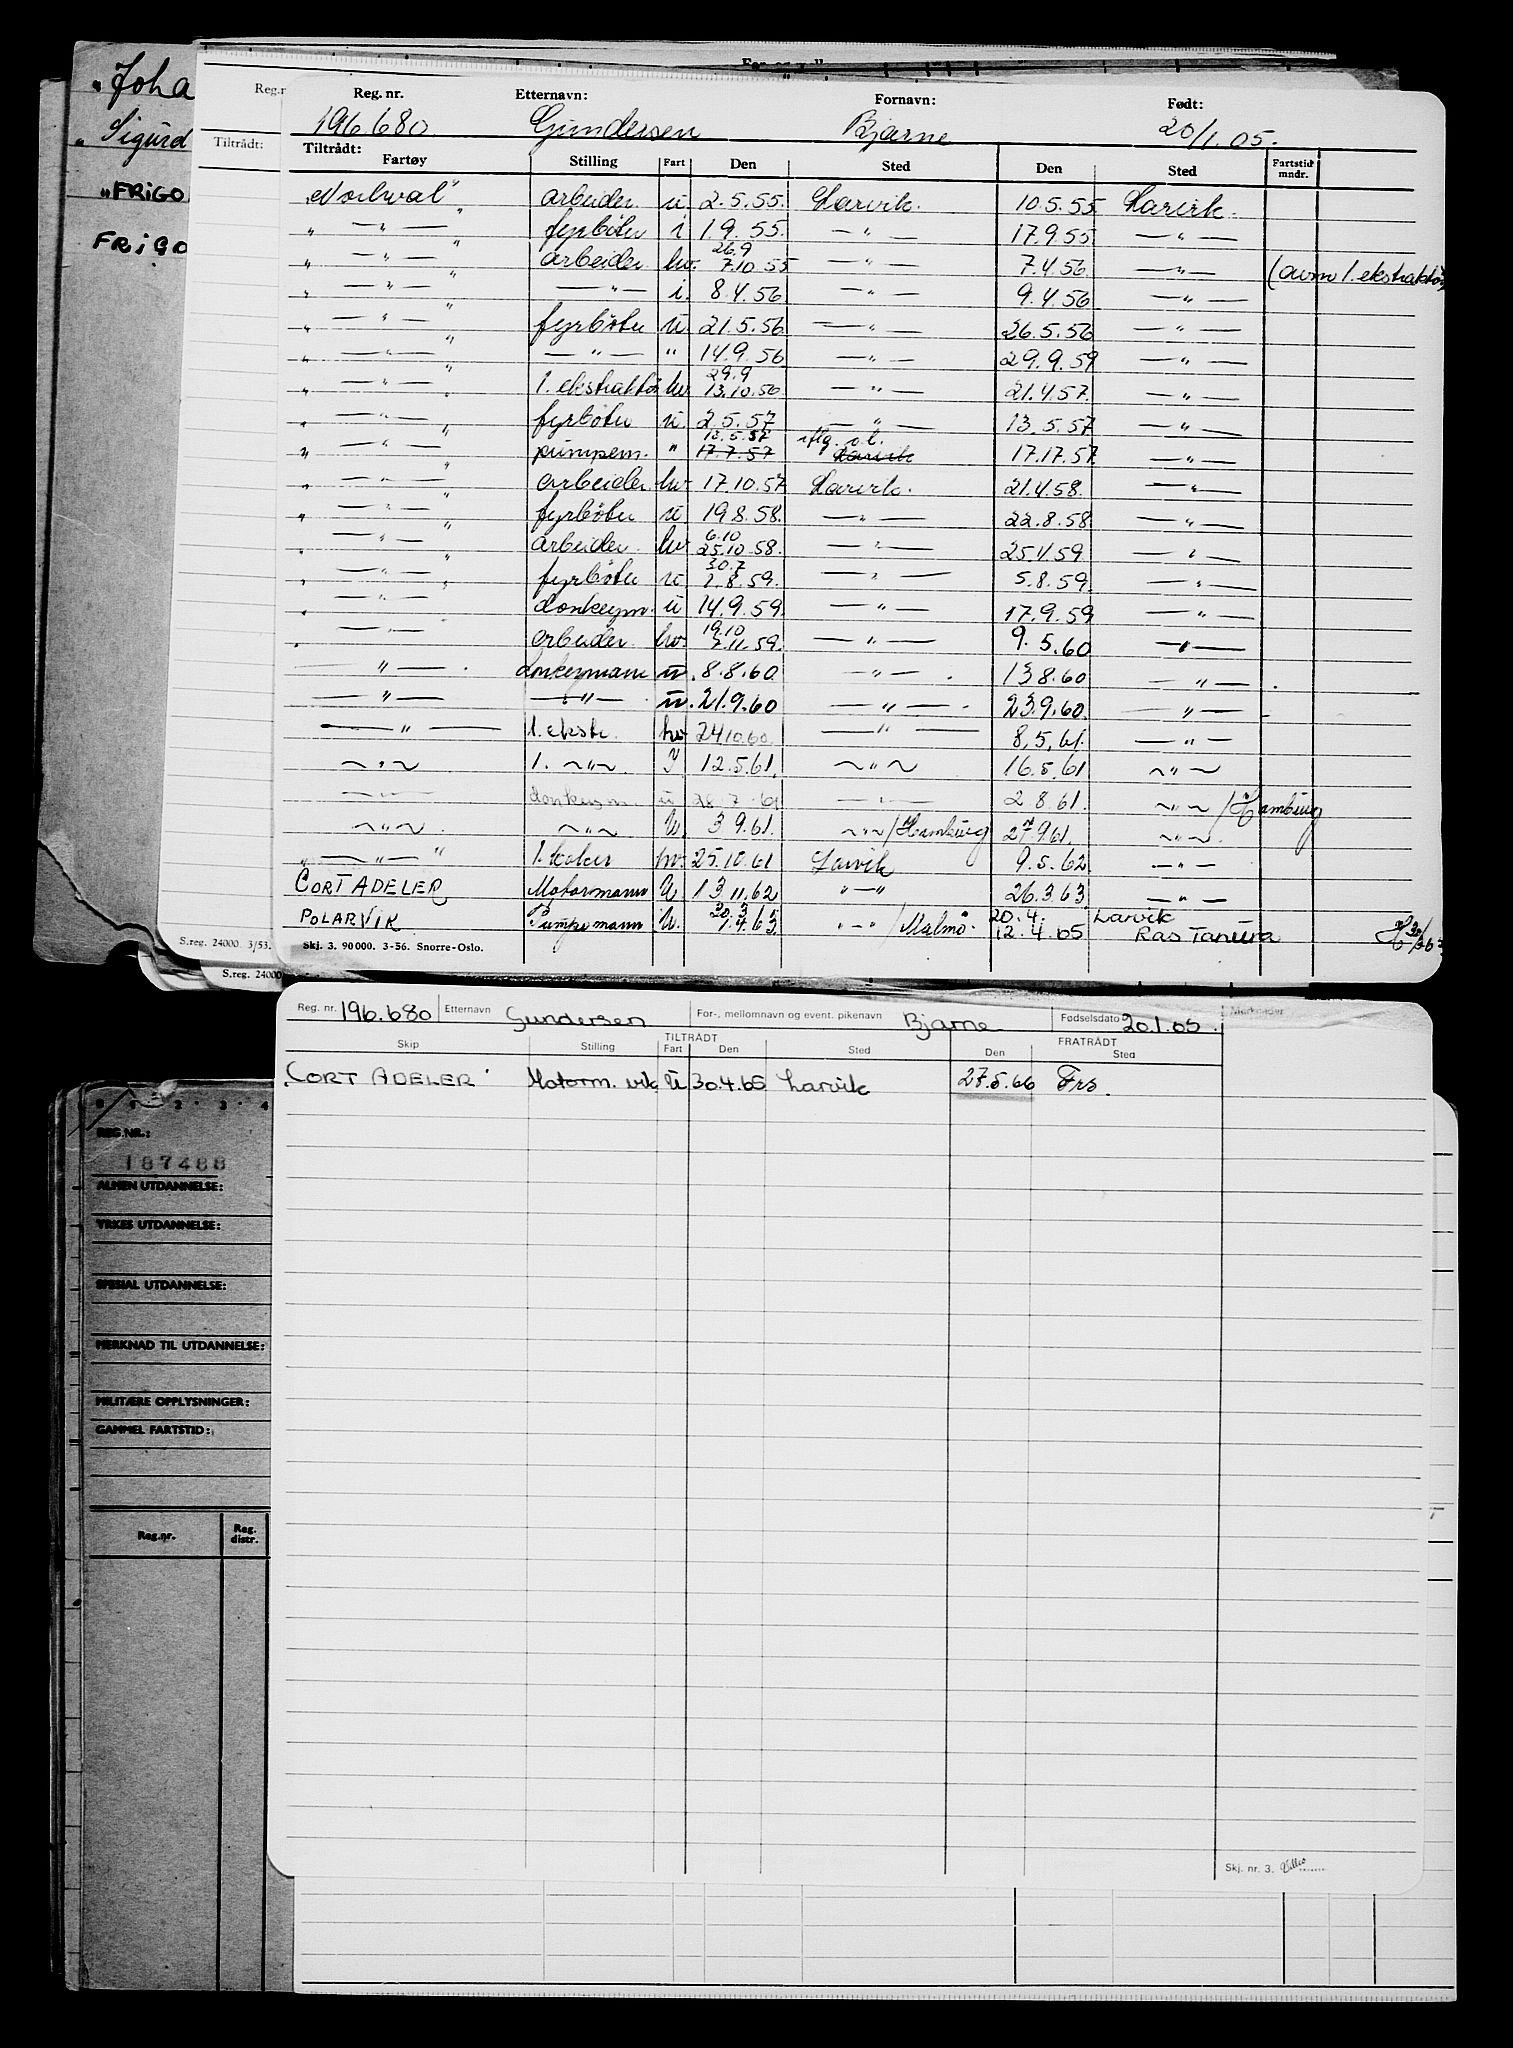 "Joha
"Sigurd
"FRIGO
FRIGO
Reg.n
Tiltrådt:
Reg. nr. Etternavn: Fornavn: Født:
196.680 Gundersen Bjarne 20/1.05.
Tiltrådt:
Fartøy Stilling Fart Den Sted Den Sted Fartstid mndr.
"Norhval" arbeider u. 2.5.55. Larvik. 10.5.55 Larvik.
" — " — " fyrbøter i 1 9.55. — " — 17.9.55 — " —
" — " — " arbeider. hv. 26.9 7.10.55 — " — 7.4.56 — " — (avm 1. ekstraktør)
" — " — " — " — i. 8.4.56 — " — 9.4.56 — " —
" — " — " fyrbøter u. 21.5.56 — " — 26.5.56 — " —
" — " — " — " — " 14.9.56 — " — 29.9.59 — " —
" — " — " 1. ekstraktør hv. 29.9 13.10.56 — " — 21.4.57. — " —
" — " — " fyrbøter u. 2.5.57 — " — 13.5.57 — " —
" — " — " pumpem. " 12.5.57 17.7.57 iflg. o.l. Larvik 17.17.57 — " —
" — " — " arbeider hv. 17.10.57 Larvik. 21.4.58. — " —
" — " — " fyrbøter u 19.8.58. — " — 22.8.58 — " —
" — " — " arbeider. hv 6.10 25.10.58. — " — 25.4.59. — " —
" — " — " fyrbøter u 30.7 1.8.59. — " — 5.8.59. — " —
" — " — donkeym. u 14.9.59. — " — 17.9.59 — " —
" — " — arbeider. hv. 19.10 7.11.59. — " — 9.5.60 — " —
— " — . donkeymann u. 8.8.60 — " — . 13 8.60 — " — .
— " — — " — u. 21.9.60 — " — . 23.9.60. — " —
— " — 1. ekstr. hv 24 10.60. — " — 8.5.61. — " —
~ " ~ 1. ~ " ~ I 12.5.61. ~ " ~ 16.5.61 ~ " ~
— " — donkeym. u 28.7.61 — " — 2 8.61. ~ " ~ / Hamburg
~ " ~ . ~ " ~ U. 3 9.61. ~ " ~ / Hamburg 27.9.61. ~ " ~ .
" — " — " 1. koker hv. 25.10.61 Larvik 9.5.62 — " —
CORT ADELER Motormann U 13 11.62 " — " 26.3 63. — " —
POLARVIK Pumpemann U. 30.3 . 1.4.63. " — " / Malmö. 20.4. 12.4.65 Larvik Ras Tanura
S.reg. 24000. 3/53. Skj. 3. 90 000. 3-56. Snorre-Oslo.
S.reg. 24000
Reg. nr. 196.680 Etternavn Gundersen For-, mellomnavn og event. pikenavn Bjarne Fødselsdato 20.1.05. Merknader
TILTRÅDT FRATRÅDT
Skip Stilling Fart Den Sted Den Sted
"CORT ADELER" Motorm. vik. U 30.4.65 Larvik 27.5.66 Frs.
REG.NR.:
187488
ALMEN UTDANNELSE:
YRKES UTDANNELSE:
SPESIAL UTDANNELSE:
MERKNAD TIL UTDANNELSE:
MILITÆRE OPPLYSNINGER:
GAMMEL FARTSTID:
Reg.nr. Reg. distr.
Skj. nr. 3.